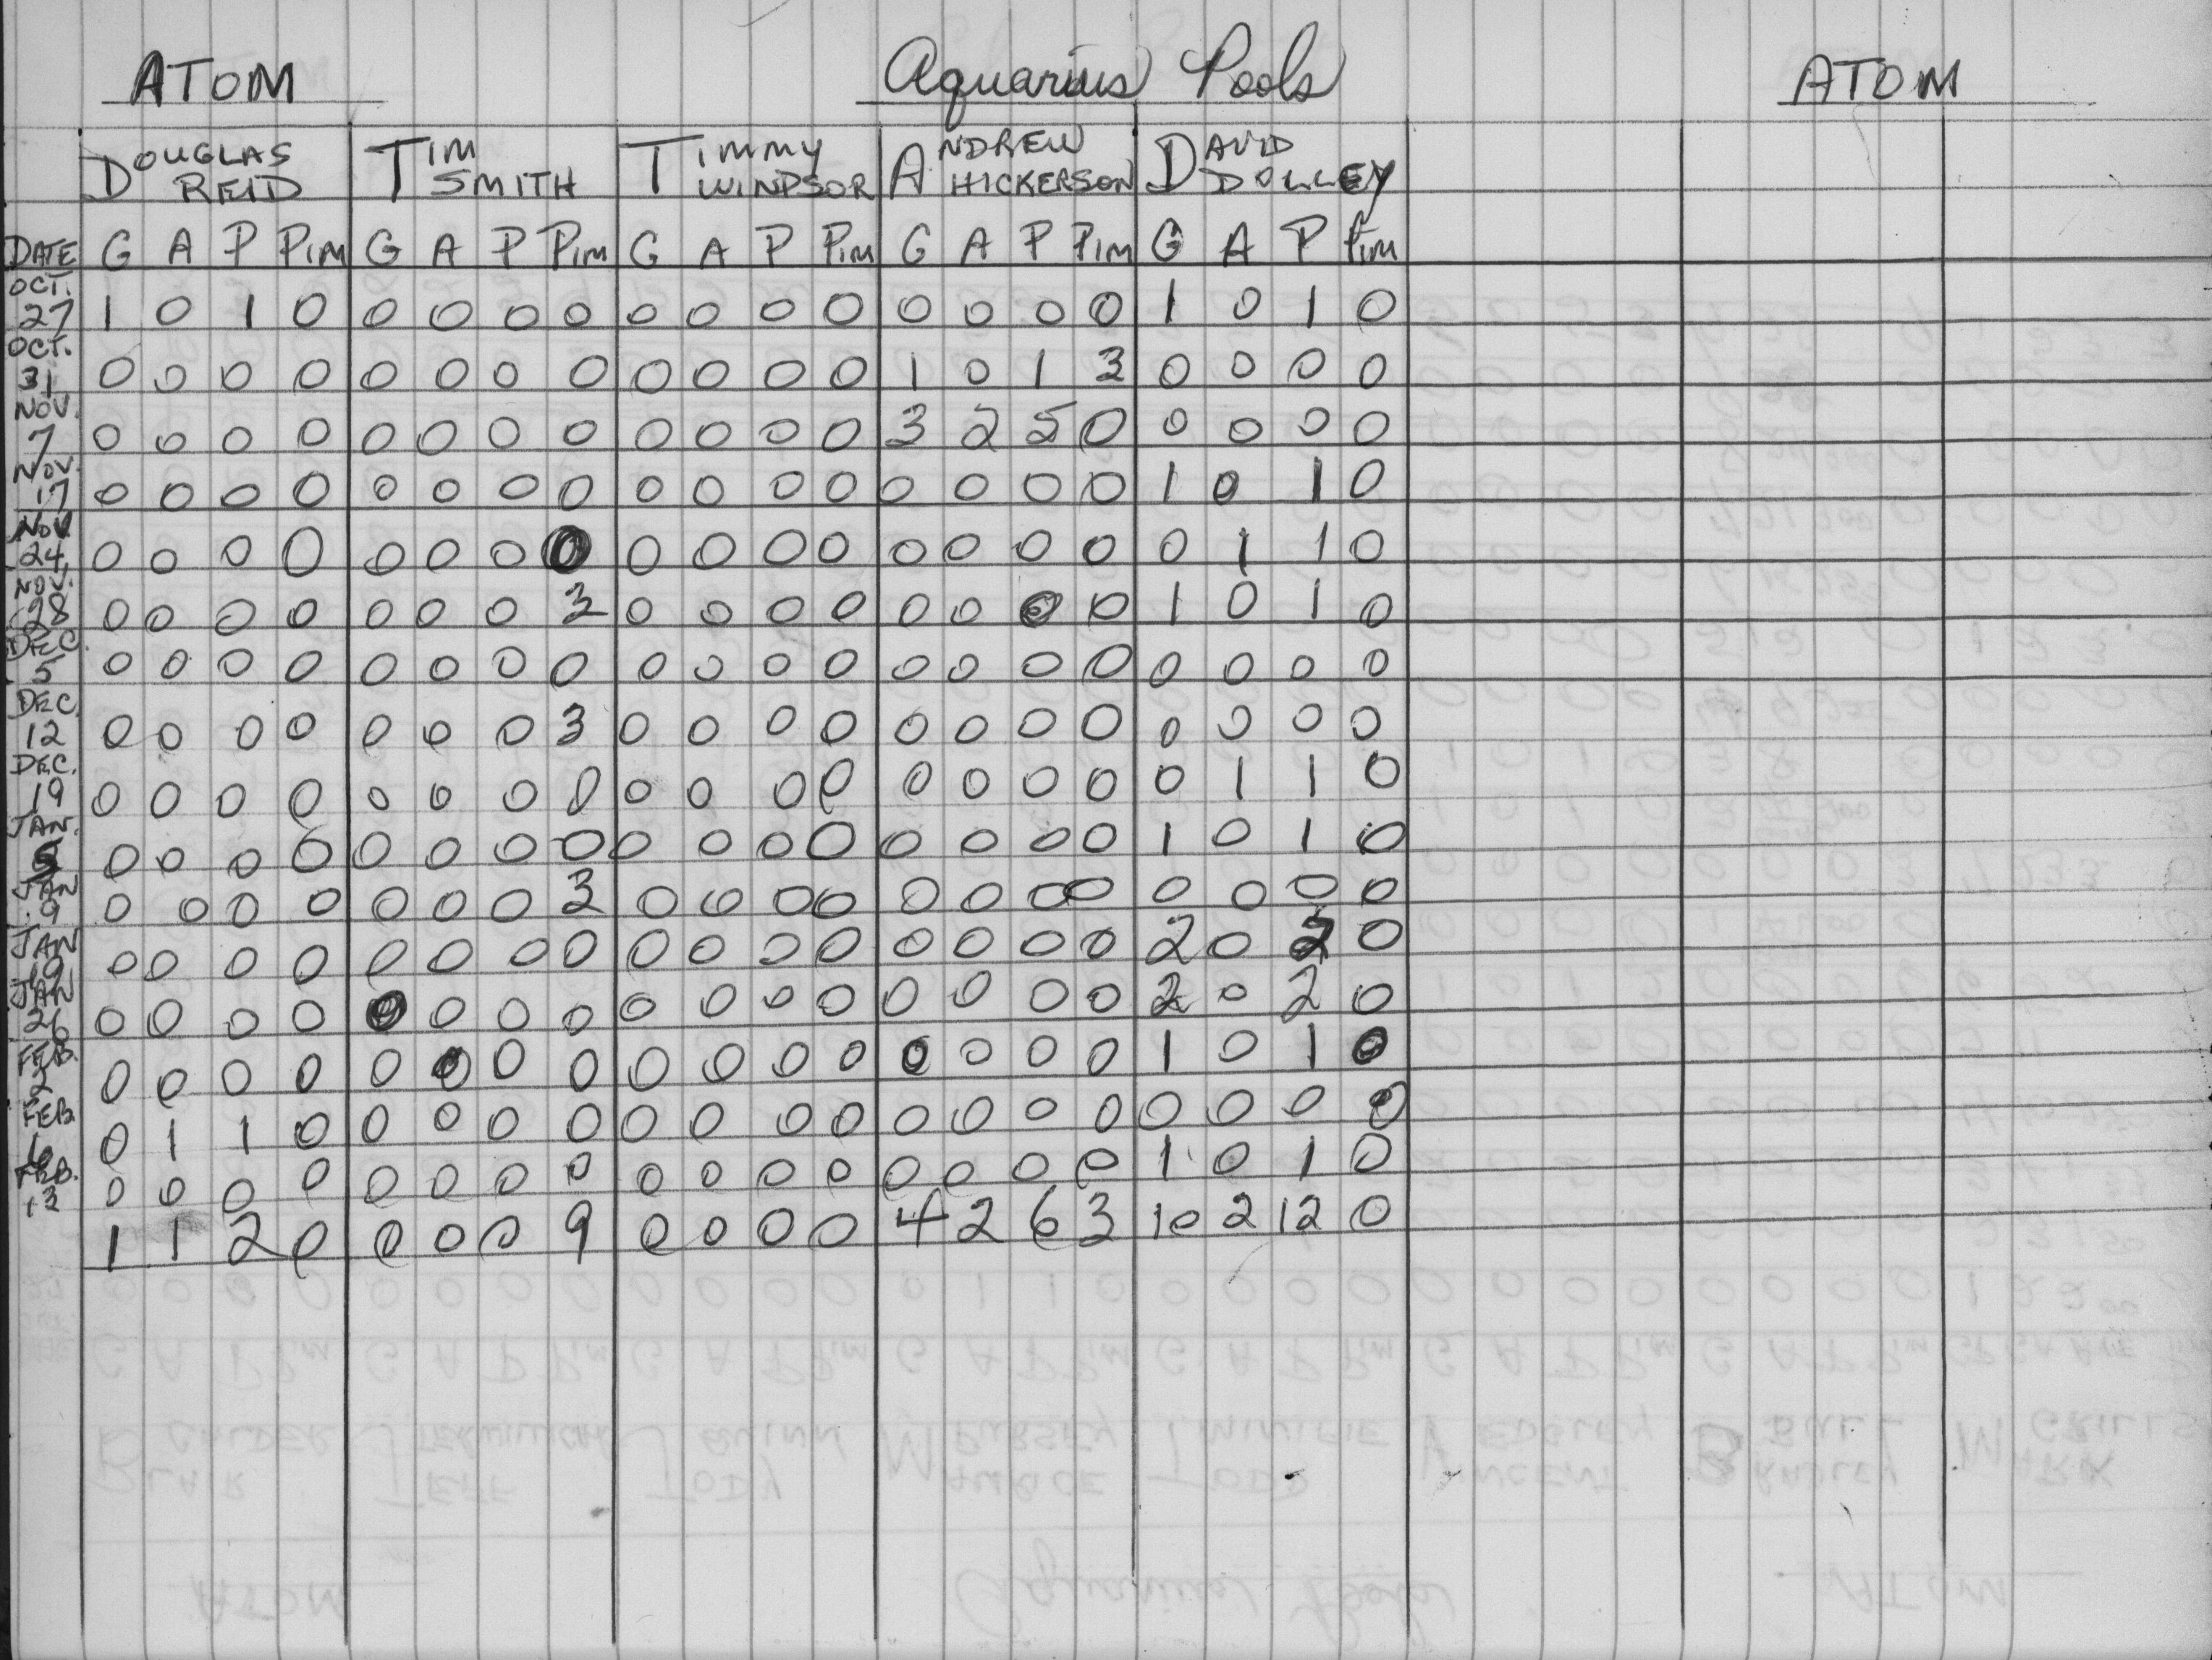 ATOM Aquarius Pools ATOM
DOUGLAS REID TIM SMITH TIMMY WINDSOR ANDREW HICKERSON DAVID DOLLEY
DATE G A P PIM G A P PIM G A P PIM G A P PIM G A P PIM
OCT. 27 1 0 1 0 0 0 0 0 0 0 0 0 0 0 0 0 1 0 1 0
OCT. 31 0 0 0 0 0 0 0 0 0 0 0 0 1 0 1 3 0 0 0 0
NOV. 7 0 0 0 0 0 0 0 0 0 0 0 0 3 2 5 0 0 0 0 0
NOV. 17 0 0 0 0 0 0 0 0 0 0 0 0 0 0 0 0 1 0 1 0
NOV 24 0 0 0 0 0 0 0 0 0 0 0 0 0 0 0 0 0 1 1 0
NOV. 28 0 0 0 0 0 0 0 3 0 0 0 0 0 0 0 0 1 0 1 0
DEC. 5 0 0 0 0 0 0 0 0 0 0 0 0 0 0 0 0 0 0 0 0
DEC. 12 0 0 0 0 0 0 0 3 0 0 0 0 0 0 0 0 0 0 0 0
DEC. 19 0 0 0 0 0 0 0 0 0 0 0 0 0 0 0 0 0 1 1 0
JAN. 5 0 0 0 0 0 0 0 0 0 0 0 0 0 0 0 0 1 0 1 0
JAN 9 0 0 0 0 0 0 0 3 0 0 0 0 0 0 0 0 0 0 0 0
JAN 19 0 0 0 0 0 0 0 0 0 0 0 0 0 0 0 0 2 0 2 0
JAN 26 0 0 0 0 0 0 0 0 0 0 0 0 0 0 0 0 2 0 2 0
FEB. 2 0 0 0 0 0 0 0 0 0 0 0 0 0 0 0 0 1 0 1 0
FEB 6 0 1 1 0 0 0 0 0 0 0 0 0 0 0 0 0 0 0 0 0
FEB. 13 0 0 0 0 0 0 0 0 0 0 0 0 0 0 0 0 1 0 1 0
1 1 2 0 0 0 0 9 0 0 0 0 4 2 6 3 10 2 12 0